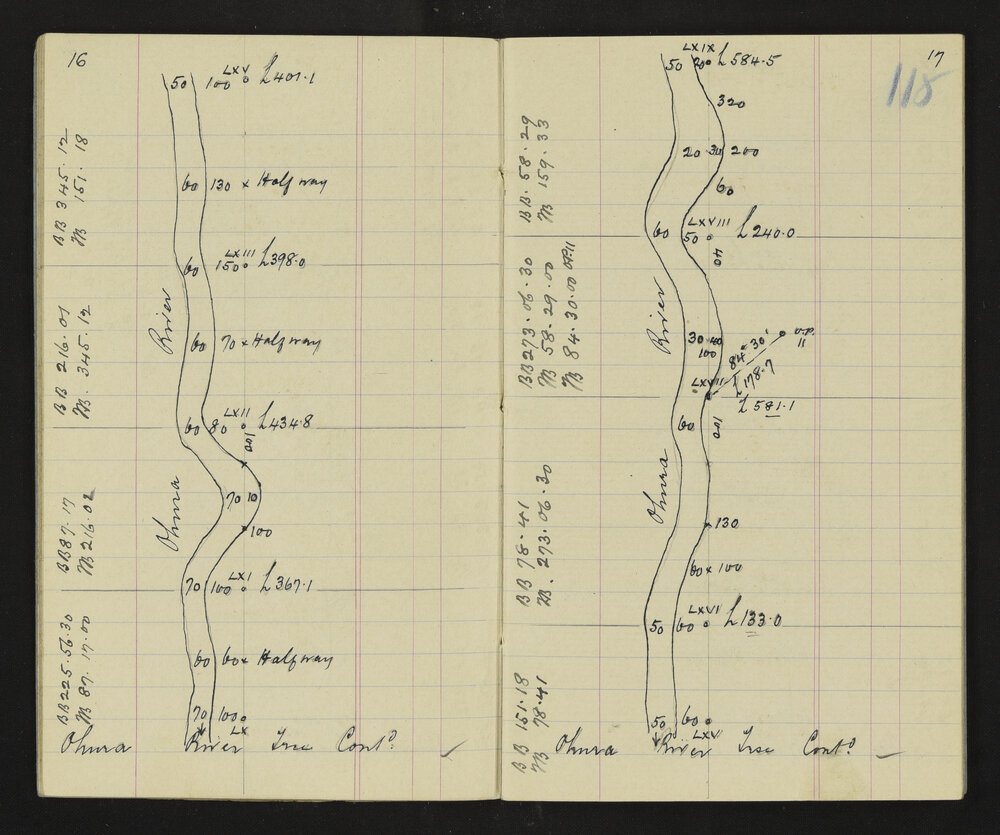 16
50 100 LXV L 401.1
BB 345.12
M 151.18
60 130 x Half way
60 150 LXIII L 398.0
BB 216.01
M. 345.12
River
60 70 x Half way
60 80 LXII L 434.8
100
70 10
Ohura
100
BB 87.17
M 216.02
70 100 LXI L 367.1
BB 225.56.30
M 87.17.00
60 60 x Half way
70 100
LX
Ohura River Trse Cont.d
17
115
50 20 LXIX L 584.5
320
BB. 58.29
M 159.33
20 30 200
60
60 50 LXVIII L 240.0
40
BB 273.06.30
M 58.29.00
M 84.30.00 O.P. 11
River
30 40
100
84° 30'
O.P.
11
LXVII L 178.7
L 581.1
60 100
Ohura
BB 78.41
M. 273.06.30
130
60 x 100
50 60 LXVI L 133.0
BB 151.18
M 78.41
50 60
LXV
Ohura River Trse Cont.d